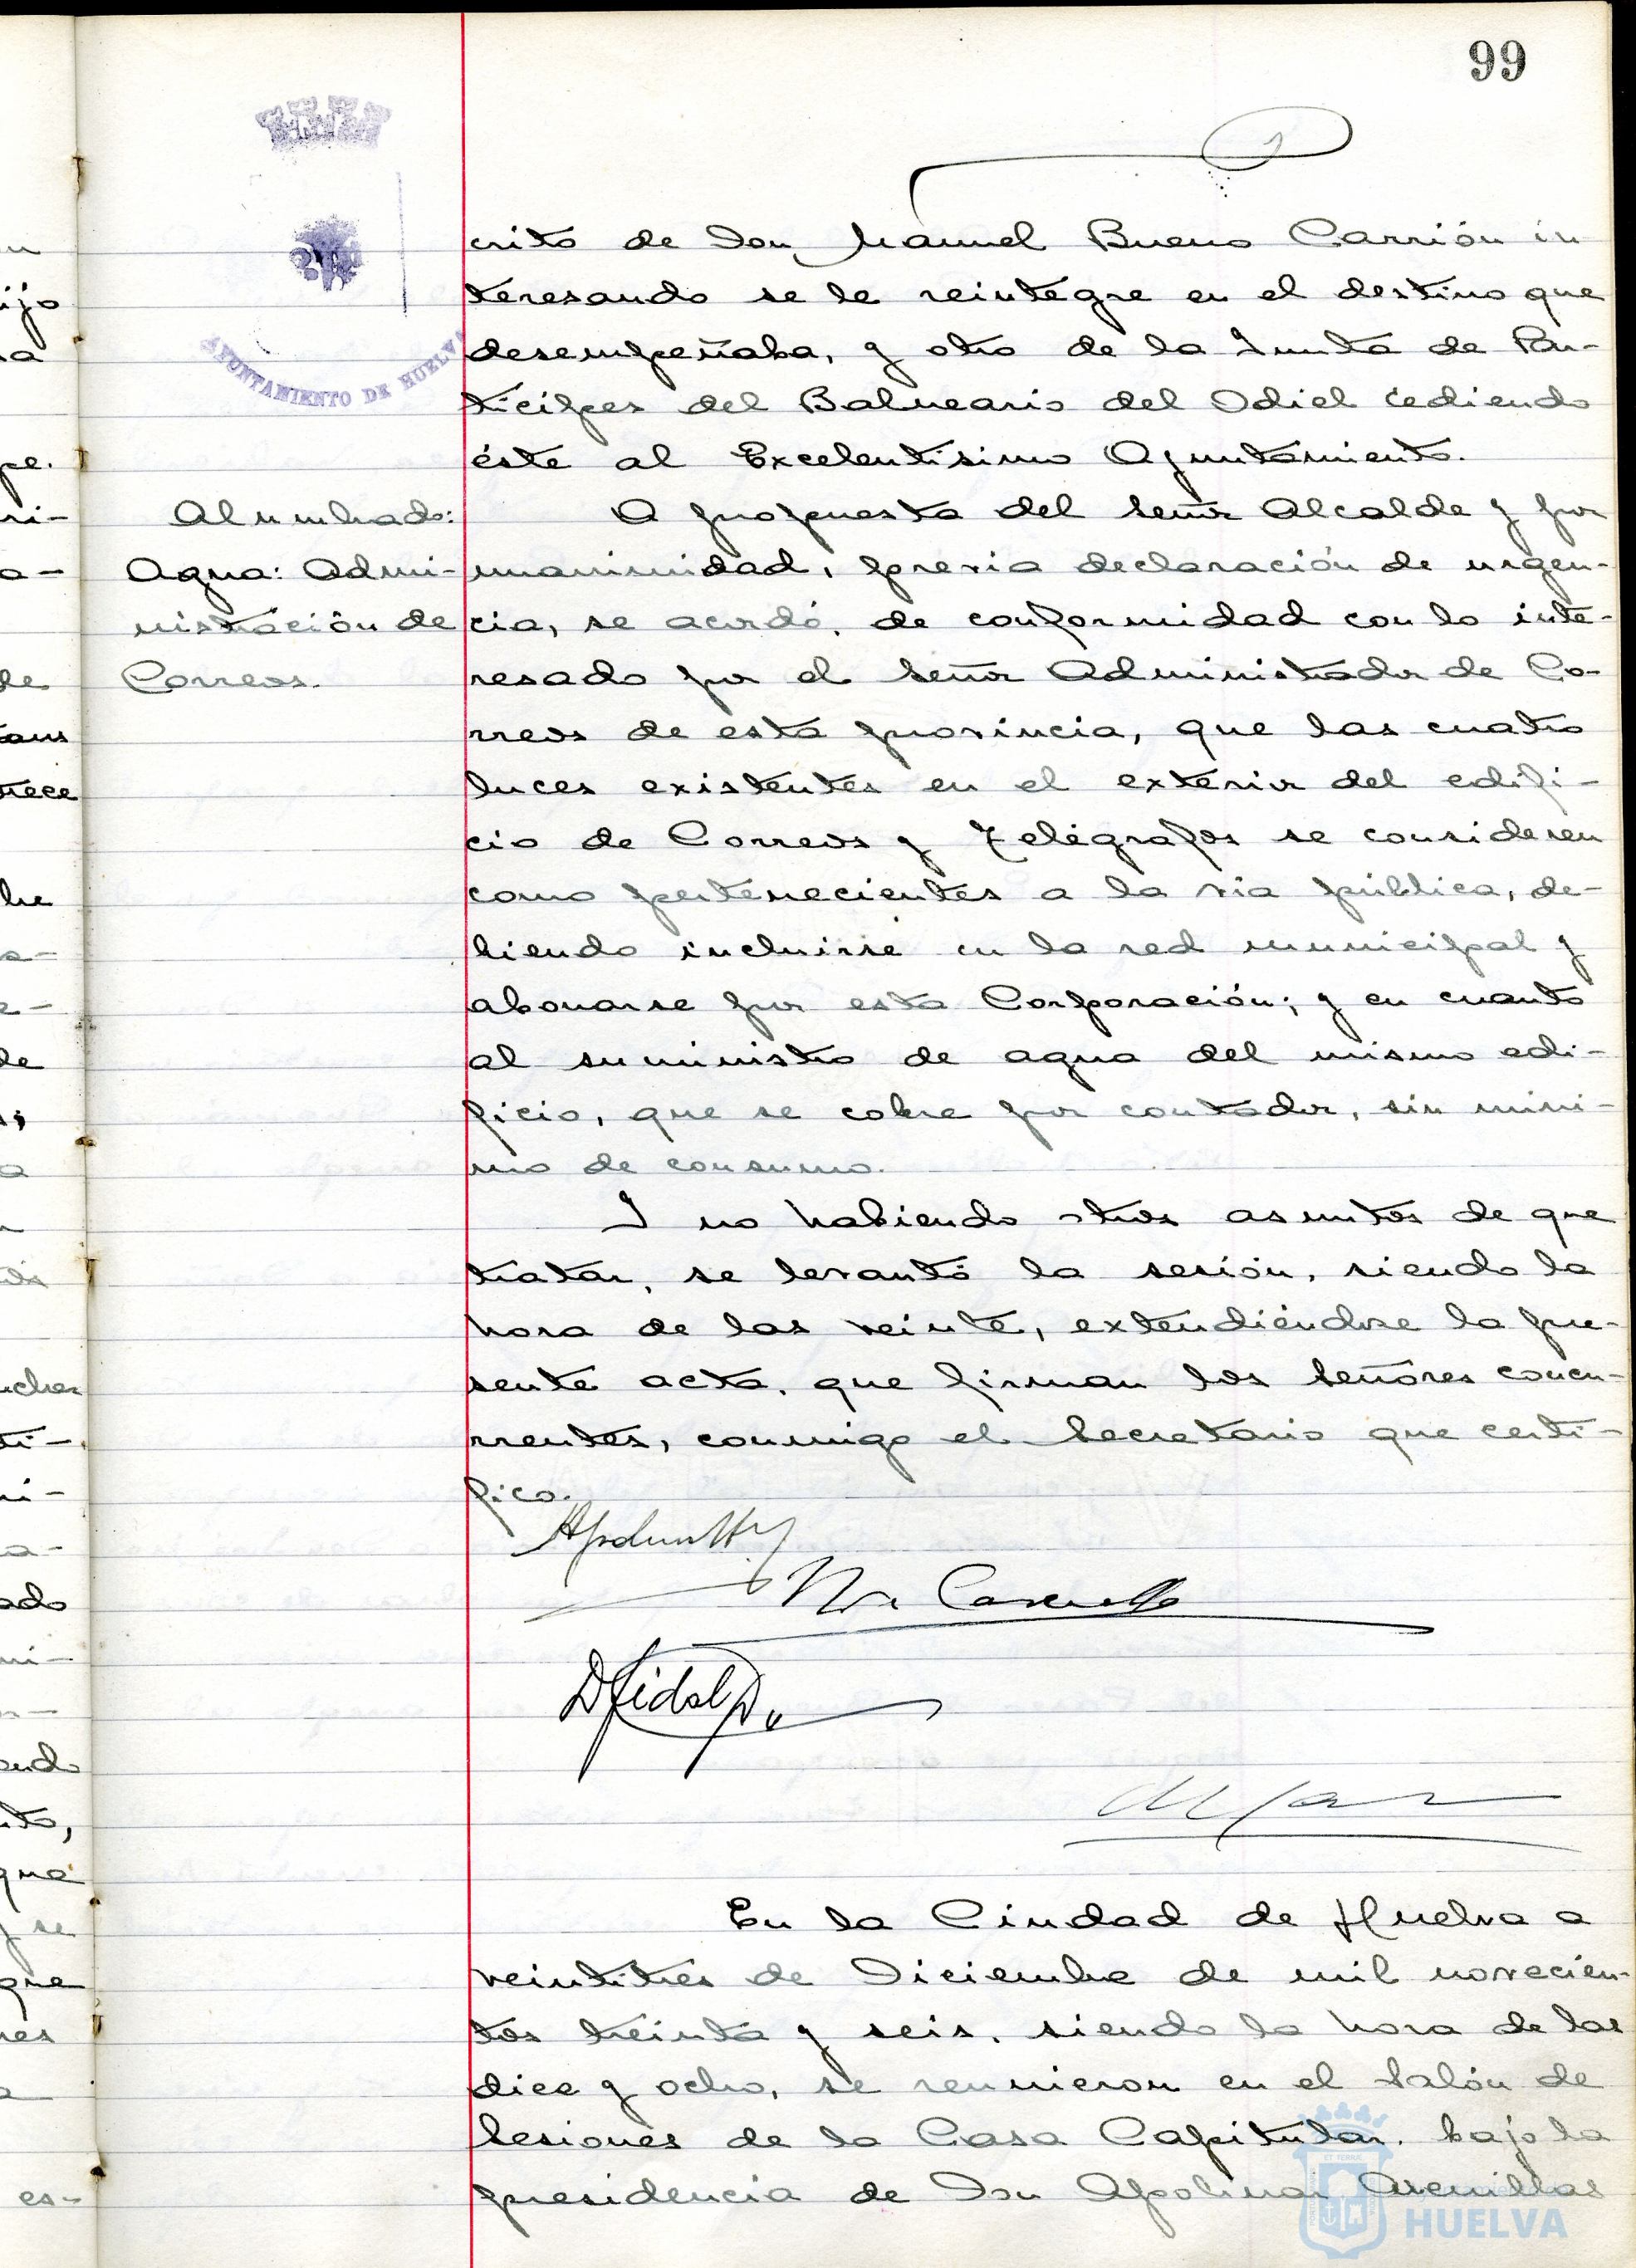 99
AYUNTAMIENTO DE HUELVA
crito de Don Manuel Bueno Carrión in
teresando se le reintegre en el destino que
desempeñaba, y otro de la Junta de Par-
tícipes del Balneario del Odiel cediendo
éste al Excelentísimo Ayuntamiento.
Alumbrado:
Agua: Admi-
nistración de
Correos.
A propuesta del Señor Alcalde y por
unanimidad, previa declaración de urgen-
cia, se acordó, de conformidad con lo inte-
resado por el Señor Administrador de Co-
rreos de esta provincia, que las cuatro
luces existentes en el exterior del edifi-
cio de Correos y Telégrafos se consideren
como pertenecientes a la vía pública, de-
biendo incluirse en la red municipal y
abonarse por esta Corporación; y en cuanto
al suministro de agua del mismo edi-
ficio, que se cobre por contador, sin míni-
mo de consumo.
Y no habiendo otros asuntos de que
tratar, se levantó la sesión, siendo la
hora de las veinte, extendiéndose la pre-
sente acta, que firman los Señores concu-
rrentes, conmigo el Secretario que certi-
fico.
En la Ciudad de Huelva a
veintitrés de Diciembre de mil novecien-
tos treinta y seis, siendo la hora de las
diez y ocho, se reunieron en el Salón de
Sesiones de la Casa Capitular, bajo la
presidencia de Don Apolinar Arenillas
HUELVA